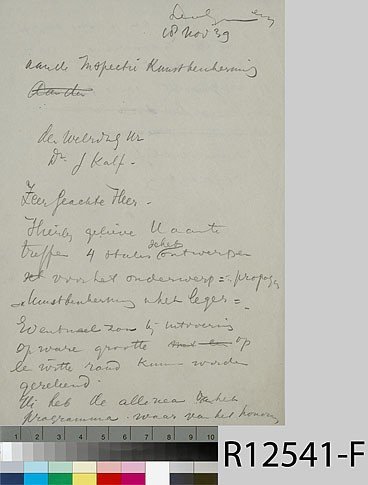 18 Nov 39
aan de Inspectie Kunstbescherming
Aan den
den Weledg Hr
Dr. J Kalf.
Zeer Geachte Heer.
Hierbij gelieve U aan te
treffen 4 stuks schets ontwerpen
voor het onderwerp =: propag
Kunstbescherming i/h leger =
Eventueel zou bij uitvoering
op ware grootte op
te witte rand kunnen worden
gerekend.
Ik heb de alinea
programma waar van het honor
1 2 3 4 5 6 7 8 9 10
R12541-F